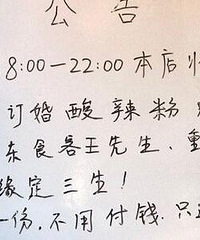 公告
8:00—22:00本店
订婚酸辣粉
东食客王先生,
缘定三生!
一份,不用付钱.只